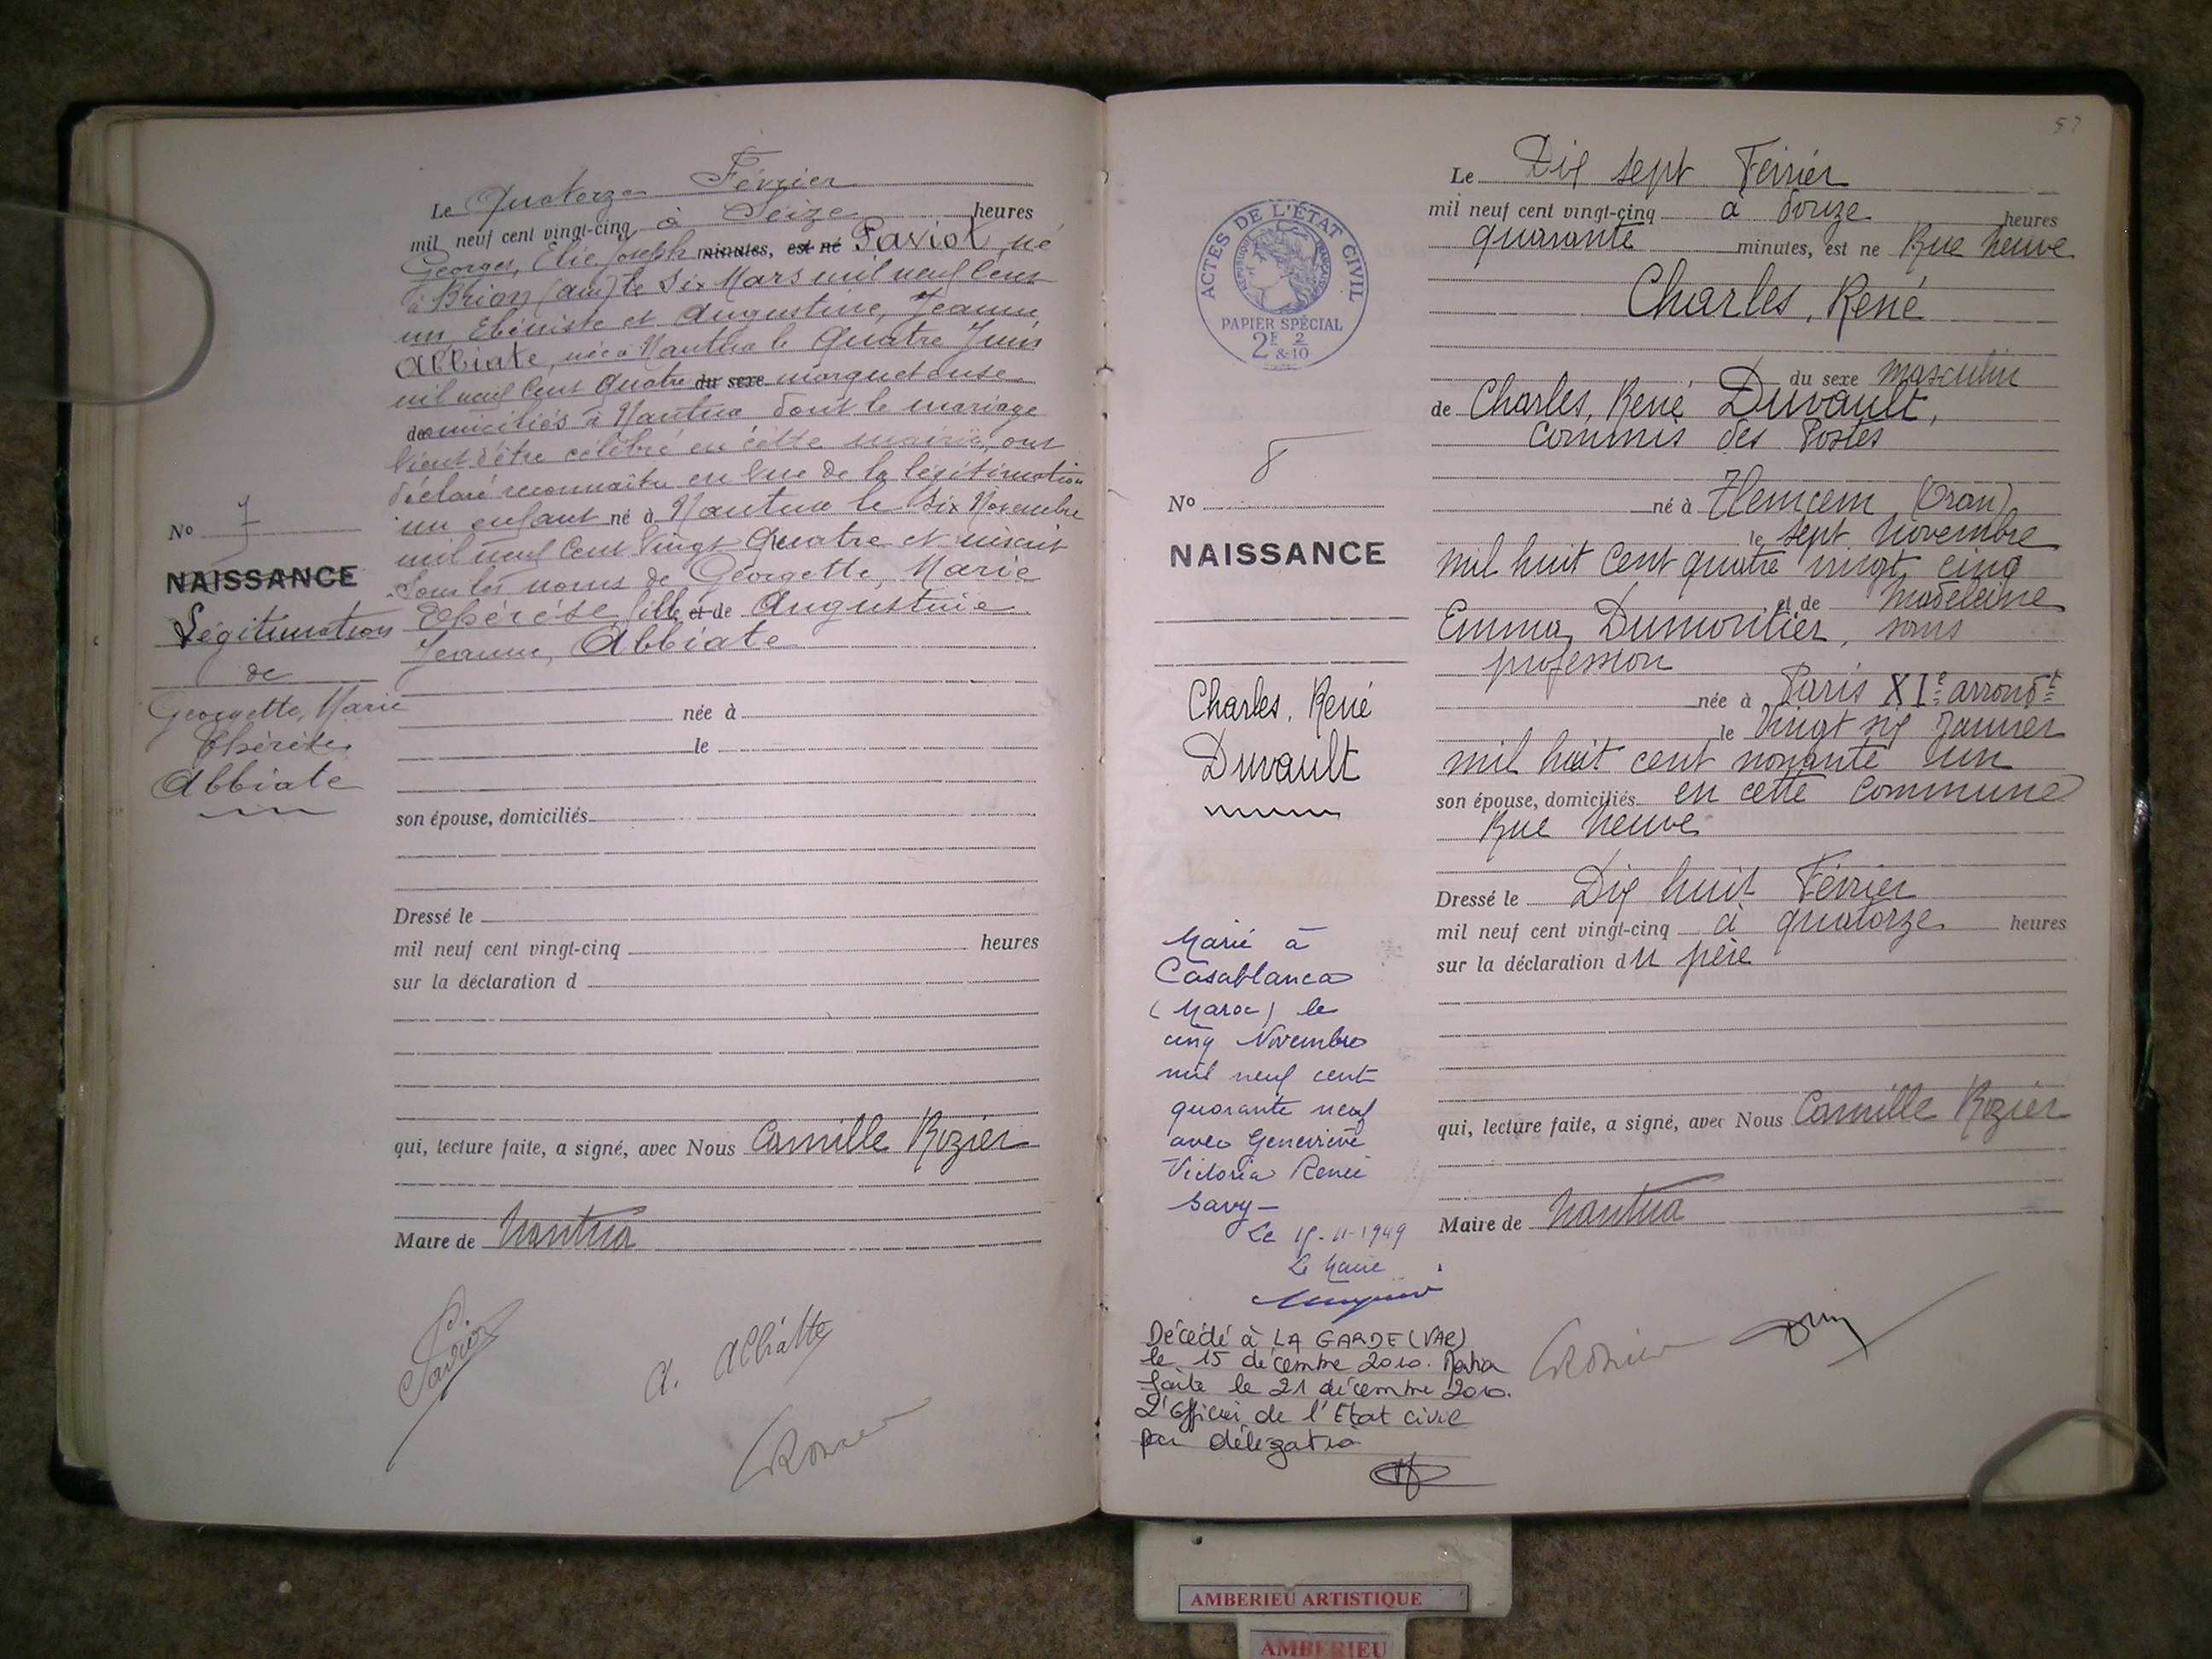 Le Quatorze Février
mil neuf cent vingt-cinq à Seize heures
Georges, Elie Joseph minutes, est né Paviot, né
à Brion (ain) le Six Mars mil neuf Cent
un, Ebéniste et Augustine, Jeanne
Abbiate, née à Nantua le Quatre Juin
mil neuf Cent Quatre du sexe marqueteuse
domiciliés à Nantua dont le mariage
vient d'être célébré en cette mairie, ont
déclaré reconnaître en vue de la légitimation
un enfant né à Nantua le Six Novembre
mil neuf Cent Vingt Quatre et inscrit
Sous les noms de Georgette, Marie
Thérèse fille et de Augustine
Jeanne, Abbiate
No 7
NAISSANCE
Légitimation
de
Georgette, Marie
Thérèse
Abbiate
née à
le
son épouse, domiciliés
Dressé le
mil neuf cent vingt-cinq heures
sur la déclaration d
qui, lecture faite, a signé, avec Nous Camille Rozier
Maire de Nantua
A. Abbiatte
57
Le Dix sept Février
mil neuf cent vingt-cinq à douze heures
quarante minutes, est né Rue Neuve
Charles, René
du sexe masculin
de Charles, René Duvault,
commis des Postes
né à Tlemcem (Oran)
le sept novembre
mil huit cent quatre vingt cinq
et de Madeleine
Emma, Dumoutier, sans
profession
née à Paris XIe arrondt
le Vingt six Janvier
mil huit cent nonante un
son épouse, domiciliés en cette commune
Rue Neuve
Dressé le Dix huit Février
mil neuf cent vingt-cinq à quatorze heures
sur la déclaration du père
qui, lecture faite, a signé, avec Nous Camille Rozier
Maire de Nantua
ACTES DE L'ÉTAT CIVIL
RÉPUBLIQUE FRANÇAISE
PAPIER SPÉCIAL
2F 2
& 10
No 8
NAISSANCE
Charles, René
Duvault
Marié à
Casablanca
(Maroc) le
cinq Novembre
mil neuf cent
quarante neuf
avec Geneviève
Victoria Renée
Savy —
Le 15-11-1949
Le Maire
Décédé à LA GARDE (VAR)
le 15 décembre 2010. Mention
faite le 21 décembre 2010.
L'Officier de l'Etat civil
par délégation
AMBERIEU ARTISTIQUE
AMBERIEU